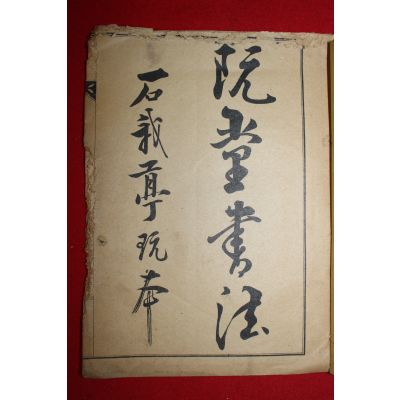 阮堂書法
石裁亭玩本